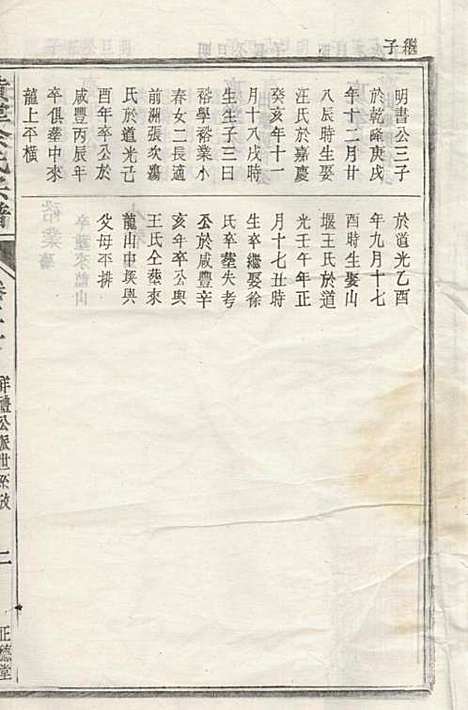 繼子
明書公三子
於乾隆庚戌
年十二月廿
八辰時生娶
汪氏於嘉慶
癸亥年十一
月十八戌時
生生子三曰
裕學裕業小
春女二長適
前洲張次殤
氏於道光己
酉年卒公於
咸豐丙辰年
卒俱葬中來
龍上平橫
於道光乙酉
年九月十七
酉時生娶山
堰王氏於道
光壬午年正
月十七丑時
生卒繼娶徐
氏卒塟失考
公於咸豐辛
亥年卒公與
王氏仝塟來
龍山中塝與
父母平排
余氏宗譜
祥禮公派世系攷
二
正德堂